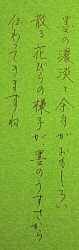 墨の濃淡と余白がおもしろい
散る花びらの様子が、墨のうすさから
伝わってきますね